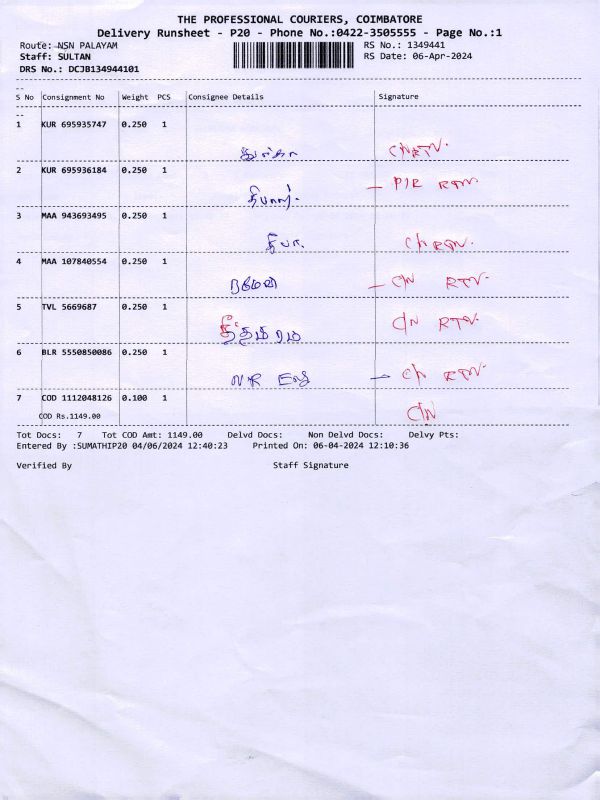 THE PROFESSIONAL COURIERS, COIMBATORE
Delivery Runsheet - P20 - Phone No.:0422-3505555 - Page No.:1
Route: NSN PALAYAM RS No.: 1349441
Staff: SULTAN RS Date: 06-Apr-2024
DRS No.: DCJB134944101
S No Consignment No Weight PCS Consignee Details Signature
1 KUR 695935747 0.250 1
2 KUR 695936184 0.250 1
P/R RTN.
3 MAA 943693495 0.250 1
தீபா.
4 MAA 107840554 0.250 1
C/N RTN.
5 TVL 5669687 0.250 1
C/N RTN.
6 BLR 5550850086 0.250 1
7 COD 1112048126 0.100 1
COD Rs.1149.00
C/N
Tot Docs: 7 Tot COD Amt: 1149.00 Delvd Docs: Non Delvd Docs: Delvy Pts:
Entered By :SUMATHIP20 04/06/2024 12:40:23 Printed On: 06-04-2024 12:10:36
Verified By Staff Signature